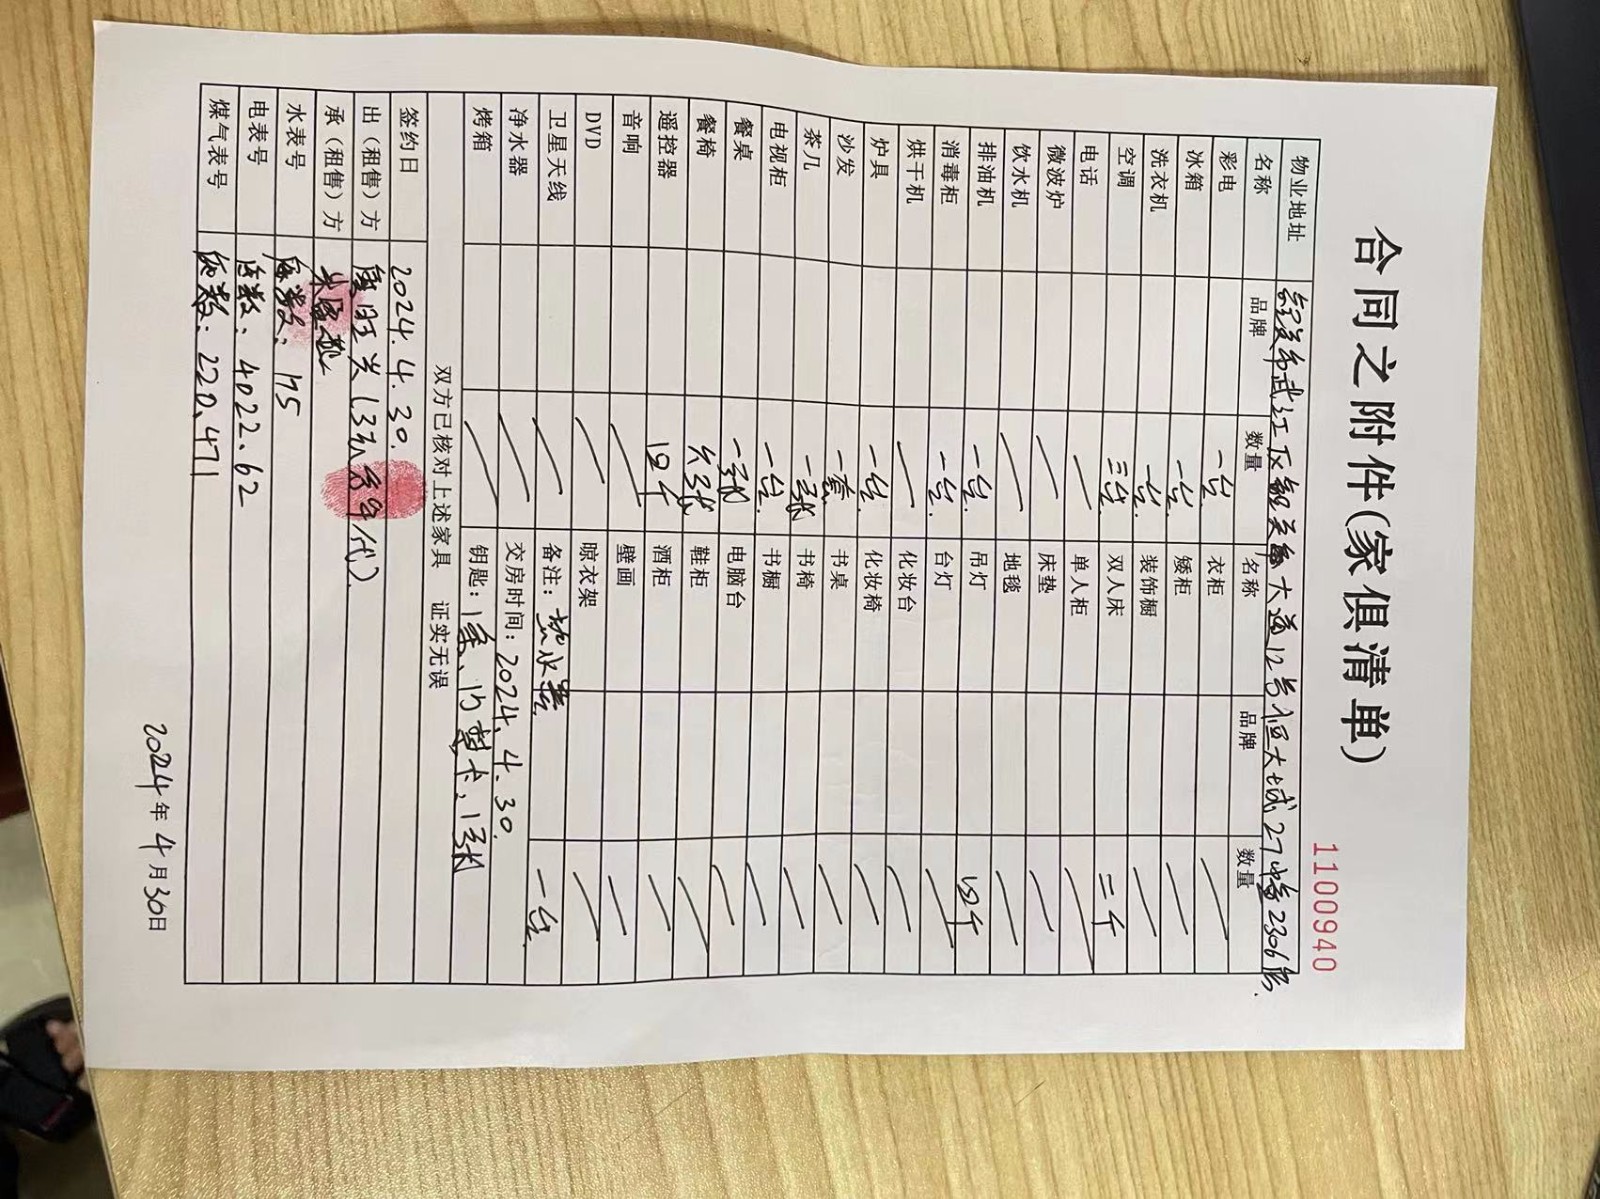 合同之附件(家俱清单)
11000940
物业地址 韶关市武江区韶关大道12号恒大城27幢2306房.
名称 品牌 数量 名称 品牌 数量
彩电 一台 衣柜
冰箱 一台 矮柜
洗衣机 一台 装饰橱
空调 三台 双人床 二个
电话 单人柜
微波炉 床垫
饮水机 地毯
排油机 一台 吊灯 四个
消毒柜 一台 台灯
烘干机 化妆台
炉具 一台 化妆椅
沙发 一套 书桌
茶几 一张 书椅
电视柜 一台 书橱
餐桌 一张 电脑台
餐椅 六张 鞋柜
遥控器 四个 酒柜
音响 壁画
DVD 晾衣架
卫星天线 备注: 热水器 一台
净水器 交房时间: 2024.4.30.
烤箱 钥匙: 1条、门禁卡:1张
双方已核对上述家具 证实无误
签约日 2024.4.30.
出(租售)方 旺兴(代).
承(租售)方
水表号 底数: 175
电表号 底数: 4022.62
煤气表号 底数: 220.471
2024年4月30日